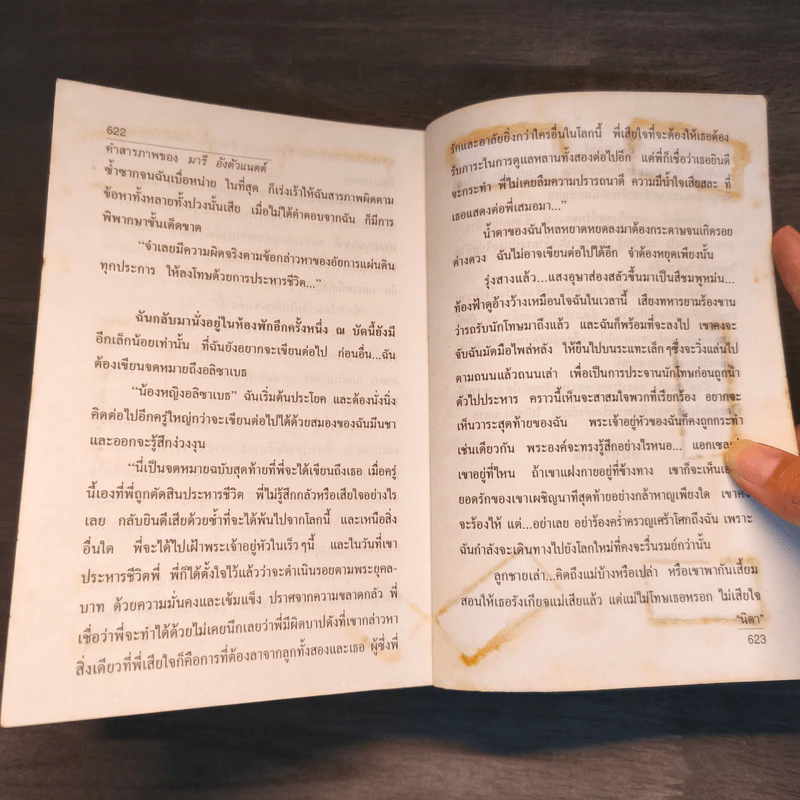 622
คำสารภาพของ มารี อังตัวแนตต์
ซ้ำซากจนฉันเบื่อหน่าย ในที่สุด ก็เร่งเร้าให้ฉันสารภาพผิดตาม
ข้อหาทั้งหลายทั้งปวงนั้นเสีย เมื่อไม่ได้คำตอบจากฉัน ก็มีการ
พิพากษาขั้นเด็ดขาด
“จำเลยมีความผิดจริงตามข้อกล่าวหาของอัยการแผ่นดิน
ทุกประการ ให้ลงโทษด้วยการประหารชีวิต...”
ฉันกลับมานั่งอยู่ในห้องพักอีกครั้งหนึ่ง ณ บัดนี้ยังมี
อีกเล็กน้อยเท่านั้น ที่ฉันยังอยากจะเขียนต่อไป ก่อนอื่น...ฉัน
ต้องเขียนจดหมายถึงอลิซาเบธ
“น้องหญิงอลิซาเบธ” ฉันเริ่มต้นประโยค และต้องนั่งนิ่ง
คิดต่อไปอีกครู่ใหญ่กว่าจะเขียนต่อไปได้ด้วยสมองของฉันมึนชา
และออกจะรู้สึกง่วงงุน
“นี่เป็นจดหมายฉบับสุดท้ายที่พี่จะได้เขียนถึงเธอ เมื่อครู่
นี้เองที่พี่ถูกตัดสินประหารชีวิต พี่ไม่รู้สึกกลัวหรือเสียใจอย่างไร
เลย กลับยินดีเสียด้วยซ้ำที่จะได้พ้นไปจากโลกนี้ และเหนือสิ่ง
อื่นใด พี่จะได้ไปเฝ้าพระเจ้าอยู่หัวในเร็วๆนี้ และในวันที่เขา
ประหารชีวิตพี่ พี่ก็ได้ตั้งใจไว้แล้วว่าจะดำเนินรอยตามพระยุคล-
บาท ด้วยความมั่นคงและเข้มแข็ง ปราศจากความขลาดกลัว พี่
เชื่อว่าพี่จะทำได้ด้วยไม่เคยนึกเลยว่าพี่มีผิดบาปดังที่เขากล่าวหา
สิ่งเดียวที่พี่เสียใจก็คือการที่ต้องลาจากลูกทั้งสองและเธอ ผู้ซึ่งพี่
รักและอาลัยยิ่งกว่าใครอื่นในโลกนี้ พี่เสียใจที่จะต้องให้เธอต้อง
รับภาระในการดูแลหลานทั้งสองต่อไปอีก แต่พี่ก็เชื่อว่าเธอยินดี
จะกระทำ พี่ไม่เคยลืมความปรารถนาดี ความมีน้ำใจเสียสละ ที่
เธอแสดงต่อพี่เสมอมา...”
น้ำตาของฉันไหลหยาดหยดลงมาต้องกระดาษจนเกิดรอย
ด่างดวง ฉันไม่อาจเขียนต่อไปได้อีก จำต้องหยุดเพียงนั้น
รุ่งสางแล้ว...แสงอุษาส่องสลัวขึ้นมาเป็นสีชมพูหม่น...
ท้องฟ้าดูอ้างว้างเหมือนใจฉันในเวลานี้ เสียงทหารยามร้องขาน
ว่ารถรับนักโทษมาถึงแล้ว และฉันก็พร้อมที่จะลงไป เขาคงจะ
จับฉันมัดมือไพล่หลัง ให้ยืนไปบนระแทะเล็กๆซึ่งจะวิ่งแล่นไป
ตามถนนแล้วถนนเล่า เพื่อเป็นการประจานนักโทษก่อนถูกนำ
ตัวไปประหาร คราวนี้เห็นจะสาสมใจพวกที่เรียกร้อง อยากจะ
เห็นวาระสุดท้ายของฉัน พระเจ้าอยู่หัวของฉันก็คงถูกกระทำ
เช่นเดียวกัน พระองค์จะทรงรู้สึกอย่างไรหนอ...
เขาอยู่ที่ไหน ถ้าเขาแฝงกายอยู่ที่ข้างทาง เขาก็จะเห็น
ยอดรักของเขาเผชิญนาทีสุดท้ายอย่างกล้าหาญเพียงใด
จะร้องไห้ แต่...อย่าเลย อย่าร้องคร่ำครวญเศร้าโศกถึงฉัน เพราะ
ฉันกำลังจะเดินทางไปยังโลกใหม่ที่คงจะรื่นรมย์กว่านั้น
ลูกชายเล่า...คิดถึงแม่บ้างหรือเปล่า หรือเขาพากันเสี้ยม
สอนให้เธอรังเกียจแม่เสียแล้ว แต่แม่ไม่โทษเธอหรอก ไม่เสียใจ
“นิดา”
623